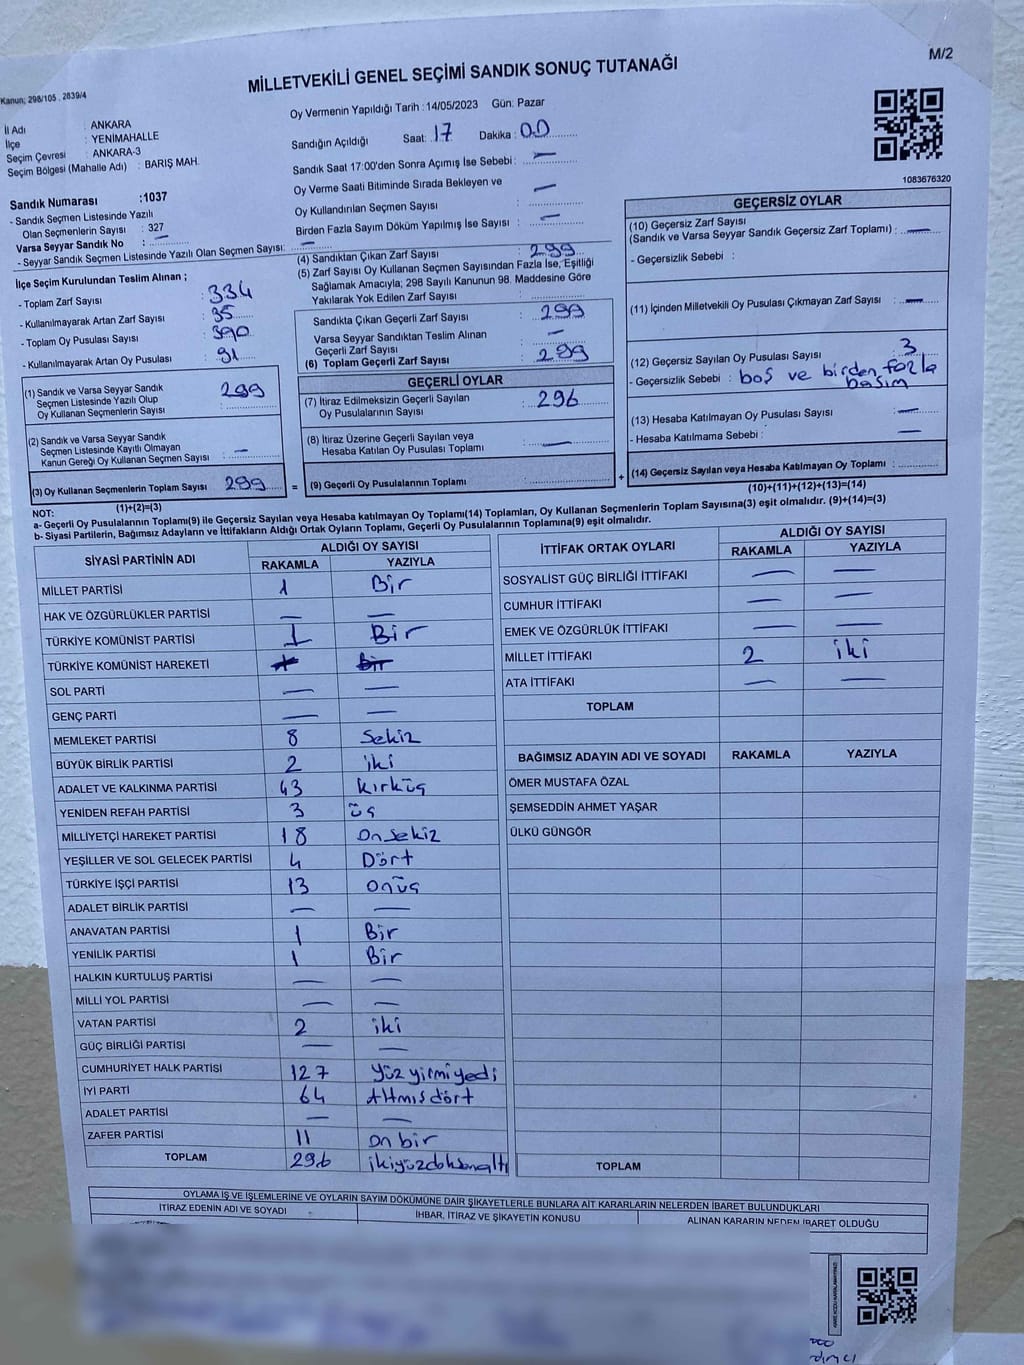 M/2
MİLLETVEKİLİ GENEL SEÇİMİ SANDIK SONUÇ TUTANAĞI
Kanun; 298/105 , 2839/4
İl Adı : ANKARA
İlçe : YENİMAHALLE
Seçim Çevresi : ANKARA-3
Seçim Bölgesi (Mahalle Adı) : BARIŞ MAH.
Sandık Numarası :1037
- Sandık Seçmen Listesinde Yazılı
Olan Seçmenlerin Sayısı : 327
Varsa Seyyar Sandık No : —
- Seyyar Sandık Seçmen Listesinde Yazılı Olan Seçmen Sayısı: —
Oy Vermenin Yapıldığı Tarih : 14/05/2023 Gün: Pazar
Sandığın Açıldığı Saat: 17 Dakika : 00
Sandık Saat 17:00'den Sonra Açımış İse Sebebi : —
Oy Verme Saati Bitiminde Sırada Bekleyen ve —
Oy Kullandırılan Seçmen Sayısı :
Birden Fazla Sayım Döküm Yapılmış İse Sayısı : —
1083676320
İlçe Seçim Kurulundan Teslim Alınan ;
- Toplam Zarf Sayısı : 334
- Kullanılmayarak Artan Zarf Sayısı : 35
- Toplam Oy Pusulası Sayısı : 390
- Kullanılmayarak Artan Oy Pusulası : 91
(1) Sandık ve Varsa Seyyar Sandık
Seçmen Listesinde Yazılı Olup
Oy Kullanan Seçmenlerin Sayısı : 299
(2) Sandık ve Varsa Seyyar Sandık
Seçmen Listesinde Kayıtlı Olmayan
Kanun Gereği Oy Kullanan Seçmen Sayısı : —
(3) Oy Kullanan Seçmenlerin Toplam Sayısı : 299
(1)+(2)=(3)
(4) Sandıktan Çıkan Zarf Sayısı : 299
(5) Zarf Sayısı Oy Kullanan Seçmen Sayısından Fazla İse, Eşitliği
Sağlamak Amacıyla; 298 Sayılı Kanunun 98. Maddesine Göre
Yakılarak Yok Edilen Zarf Sayısı :
Sandıkta Çıkan Geçerli Zarf Sayısı : 299
Varsa Seyyar Sandıktan Teslim Alınan
Geçerli Zarf Sayısı : —
(6) Toplam Geçerli Zarf Sayısı : 299
GEÇERLİ OYLAR
(7) İtiraz Edilmeksizin Geçerli Sayılan
Oy Pusulalarının Sayısı : 296
(8) İtiraz Üzerine Geçerli Sayılan veya
Hesaba Katılan Oy Pusulası Toplamı : —
= (9) Geçerli Oy Pusulalarının Toplamı : +
GEÇERSİZ OYLAR
(10) Geçersiz Zarf Sayısı
(Sandık ve Varsa Seyyar Sandık Geçersiz Zarf Toplamı) : —
- Geçersizlik Sebebi :
(11) İçinden Milletvekili Oy Pusulası Çıkmayan Zarf Sayısı : —
(12) Geçersiz Sayılan Oy Pusulası Sayısı : 3
- Geçersizlik Sebebi : boş ve birden fazla
basım
(13) Hesaba Katılmayan Oy Pusulası Sayısı : —
- Hesaba Katılmama Sebebi : —
(14) Geçersiz Sayılan veya Hesaba Katılmayan Oy Toplamı :
(10)+(11)+(12)+(13)=(14)
NOT:
a- Geçerli Oy Pusulalarının Toplamı(9) ile Geçersiz Sayılan veya Hesaba katılmayan Oy Toplamı(14) Toplamları, Oy Kullanan Seçmenlerin Toplam Sayısına(3) eşit olmalıdır. (9)+(14)=(3)
b- Siyasi Partilerin, Bağımsız Adayların ve İttifakların Aldığı Ortak Oyların Toplamı, Geçerli Oy Pusulalarının Toplamına(9) eşit olmalıdır.
SİYASİ PARTİNİN ADI ALDIĞI OY SAYISI
RAKAMLA YAZIYLA
MİLLET PARTİSİ 1 Bir
HAK VE ÖZGÜRLÜKLER PARTİSİ — —
TÜRKİYE KOMÜNİST PARTİSİ 1 Bir
TÜRKİYE KOMÜNİST HAREKETİ
SOL PARTİ — —
GENÇ PARTİ — —
MEMLEKET PARTİSİ 8 Sekiz
BÜYÜK BİRLİK PARTİSİ 2 iki
ADALET VE KALKINMA PARTİSİ 43 kırküç
YENİDEN REFAH PARTİSİ 3 üç
MİLLİYETÇİ HAREKET PARTİSİ 18 Onsekiz
YEŞİLLER VE SOL GELECEK PARTİSİ 4 Dört
TÜRKİYE İŞÇİ PARTİSİ 13 onüç
ADALET BİRLİK PARTİSİ — —
ANAVATAN PARTİSİ 1 Bir
YENİLİK PARTİSİ 1 Bir
HALKIN KURTULUŞ PARTİSİ — —
MİLLİ YOL PARTİSİ — —
VATAN PARTİSİ 2 iki
GÜÇ BİRLİĞİ PARTİSİ — —
CUMHURİYET HALK PARTİSİ 127 yüz yirmi yedi
İYİ PARTİ 64 Altmış dört
ADALET PARTİSİ — —
ZAFER PARTİSİ 11 on bir
TOPLAM 296 ikiyüzdoksanaltı
İTTİFAK ORTAK OYLARI ALDIĞI OY SAYISI
RAKAMLA YAZIYLA
SOSYALİST GÜÇ BİRLİĞİ İTTİFAKI — —
CUMHUR İTTİFAKI — —
EMEK VE ÖZGÜRLÜK İTTİFAKI — —
MİLLET İTTİFAKI 2 iki
ATA İTTİFAKI — —
TOPLAM
BAĞIMSIZ ADAYIN ADI VE SOYADI RAKAMLA YAZIYLA
ÖMER MUSTAFA ÖZAL
ŞEMSEDDİN AHMET YAŞAR
ÜLKÜ GÜNGÖR
TOPLAM
OYLAMA İŞ VE İŞLEMLERİNE VE OYLARIN SAYIM DÖKÜMÜNE DAİR ŞİKAYETLERLE BUNLARA AİT KARARLARIN NELERDEN İBARET BULUNDUKLARI
İTİRAZ EDENİN ADI VE SOYADI İHBAR, İTİRAZ VE ŞİKAYETİN KONUSU ALINAN KARARIN NEDEN İBARET OLDUĞU